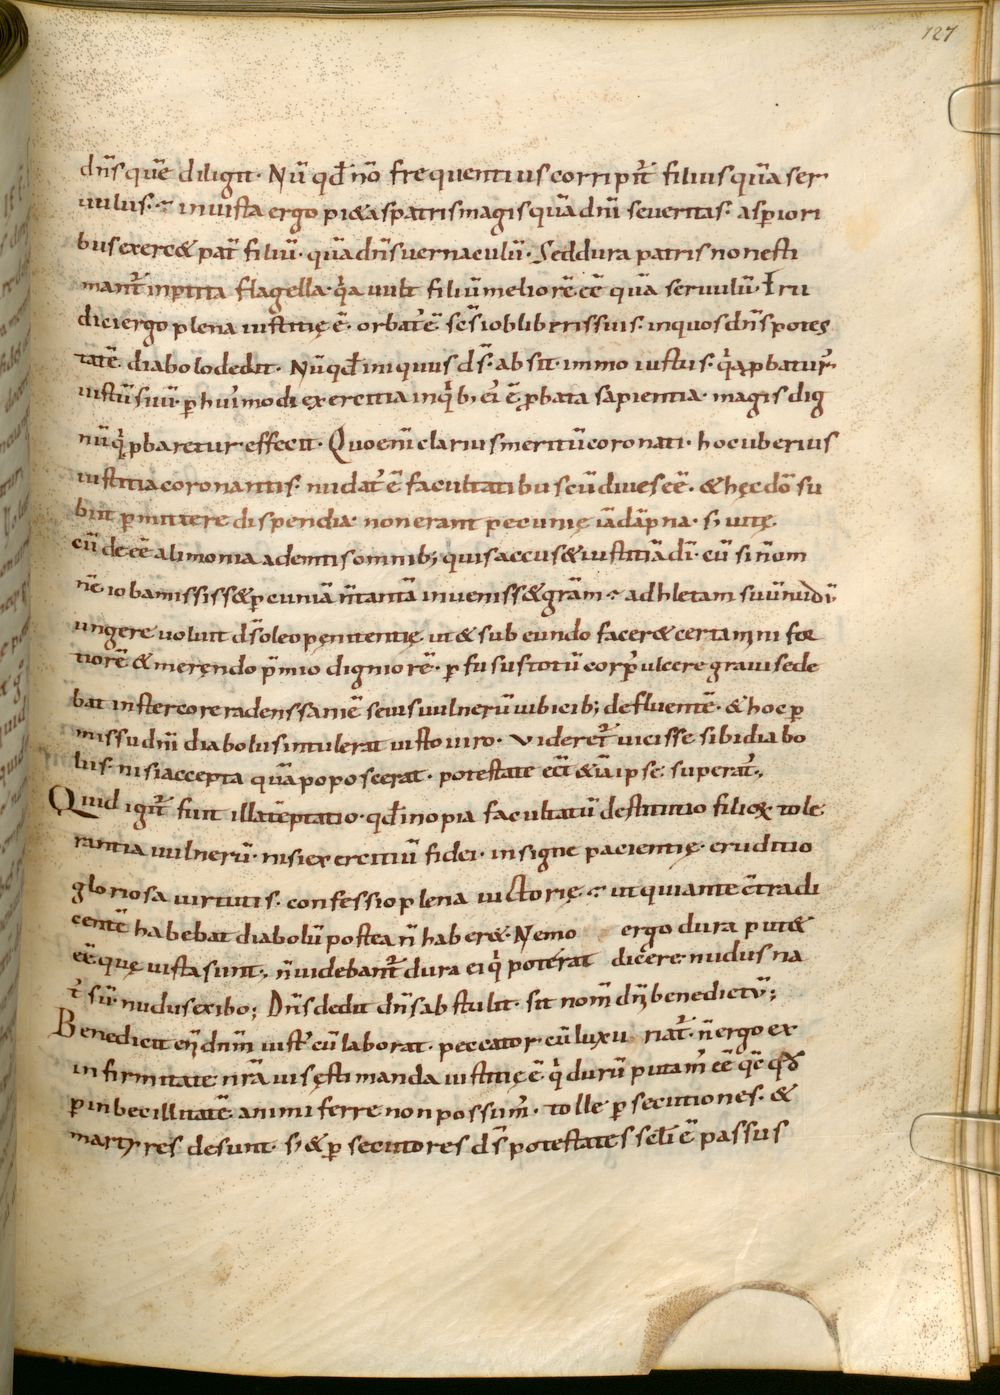 127
dn̄s quē diligit· Nū qđ nō frequentius corripit̄ filius quā ser
uulus· iniusta ergo pietas patris magis quā dn̄i seueritas· asperiori
bus exercet pat̄ filiū· quā dn̄s uernaculū· Sed dura patris non esti
mant̄ flagella· qͥa uult filiū meliorē eē quā seruulū· Iru
dici ergo plena iustitię ē· orbat᷒ ē sc̄s iob liberis suis· in quos dn̄s potes
tatē diabolo dedit· Nū qđ iniquus ds̄· absit· immo iustus· qͥa ꝓbatur᷒
iustū suū· ꝑ hui᷒modi exercitia in qͥb; ei᷒ ē ꝓbata sapientia· magis dig
nū qͥ ꝓbaretur effecit· Quo enī clarius meritū coronati· hoc uberius
iustitia coronantis· nudat᷒ ē facultatibus cū diues eē· & hęc dōsu
but ꝑmittere dispendia· non erant pecunię iā dāpna· s; uitę·
cū deeē alimonia ademtis omnib; quis accus& iustitiā dī· cū si n̄ om
nē iob amississ& pecuniā n̄ tantā inueniss& gr̄am· adhletam suū nudū
ungere uoluit ds̄ oleo pęnitentię ut & subeundo facer& certamini for
tiorē & merendo p̄mio digniorē· ꝑfusus totū corp᷒ ulcere graui sede
bat in stercore radens saniē se uis uulnerū uibicib; defluentē· & hoc ꝑ
missu dn̄i diabolus intulerat iusto uiro· Videret᷒ uicisse sibi diabo
lus· nisi accepta quā poposcerat· potestate & iā ipse superat᷒·
Quid igit̄ fuit illa tēptatio· qđ inopia facultatū destitutio filioꝝ· tole
rantia uulnerū· nisi exercitiū fidei· insigne pacientię· eruditio
gloriosa uirtutis· confessio plena uictorię· ut qui ante c̄tradi
centē habebat diabolū postea n̄ haber&· Nemo ergo dura put&
eē quę iusta sunt· n̄ uidebant᷒ dura ei qͥ poterat dicere· nudus na
t᷒ sū· nudus exibo; Dn̄s dedit dn̄s abstulit· sit nom̄ dn̄i benedictū;
Benedicit eni dn̄m iust᷒ cū laborat· peccator· cū luxu riat᷒· n̄ ergo ex
infirmitate nr̄a uis ęstimanda iustitię ē qͥ durū putam᷒ eē qđ
ꝑ inbecillitatē animi ferre non possum᷒· tolle ꝑsecutiones· &
martyres desunt· s; & ꝑsecutores ds̄ potestates sc̄li ē passus